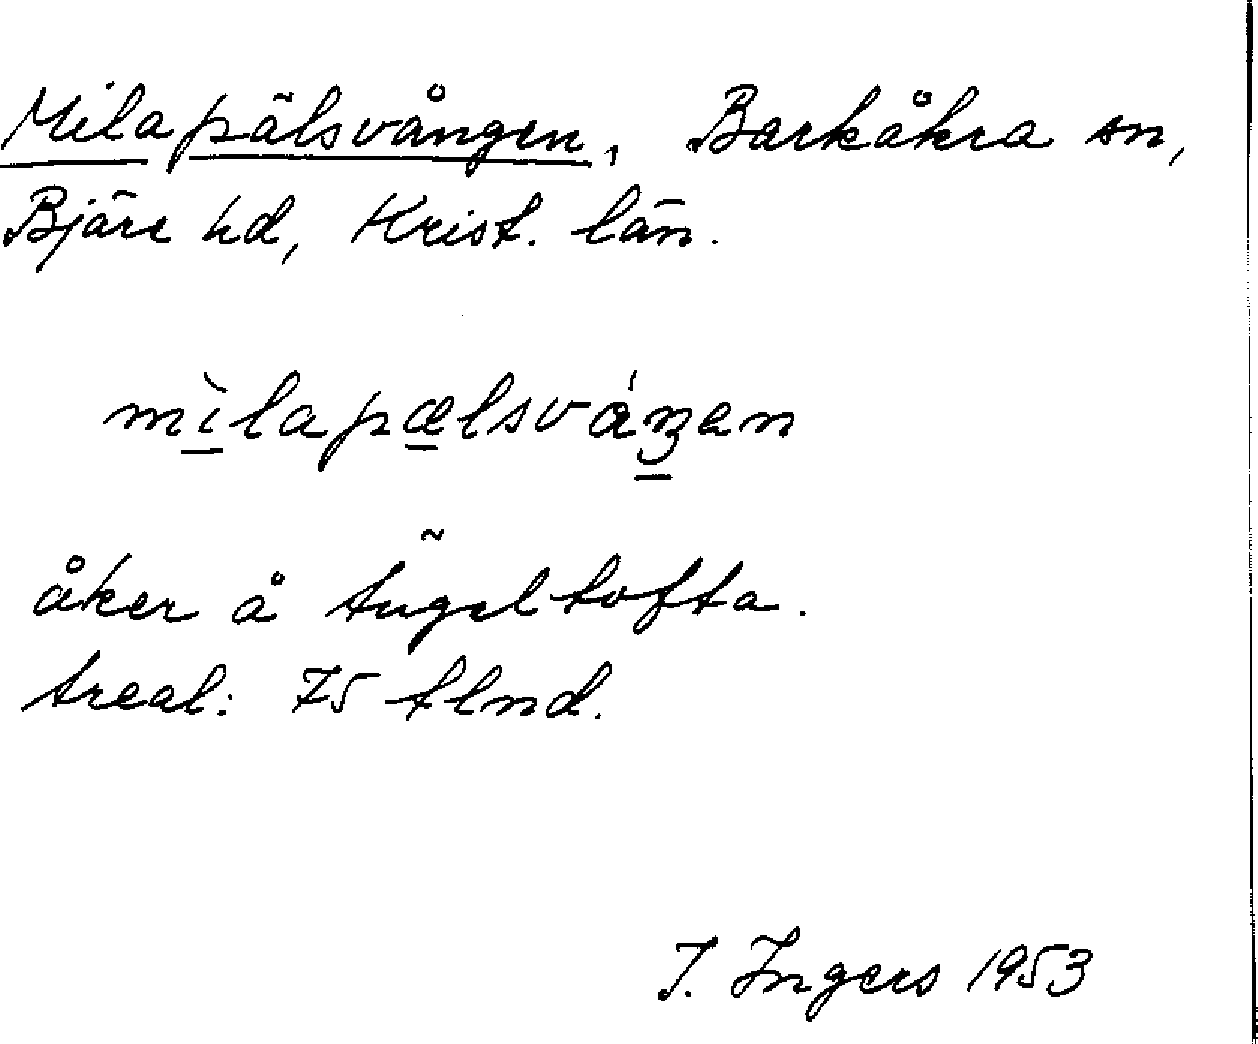 Milapälsvången, Barkåkra sn,
Bjäre hd, Krist. län.
mìlapælsváŋen
åker å Ängeltofta.
Areal: 75 tlnd.
I. Ingers 1953